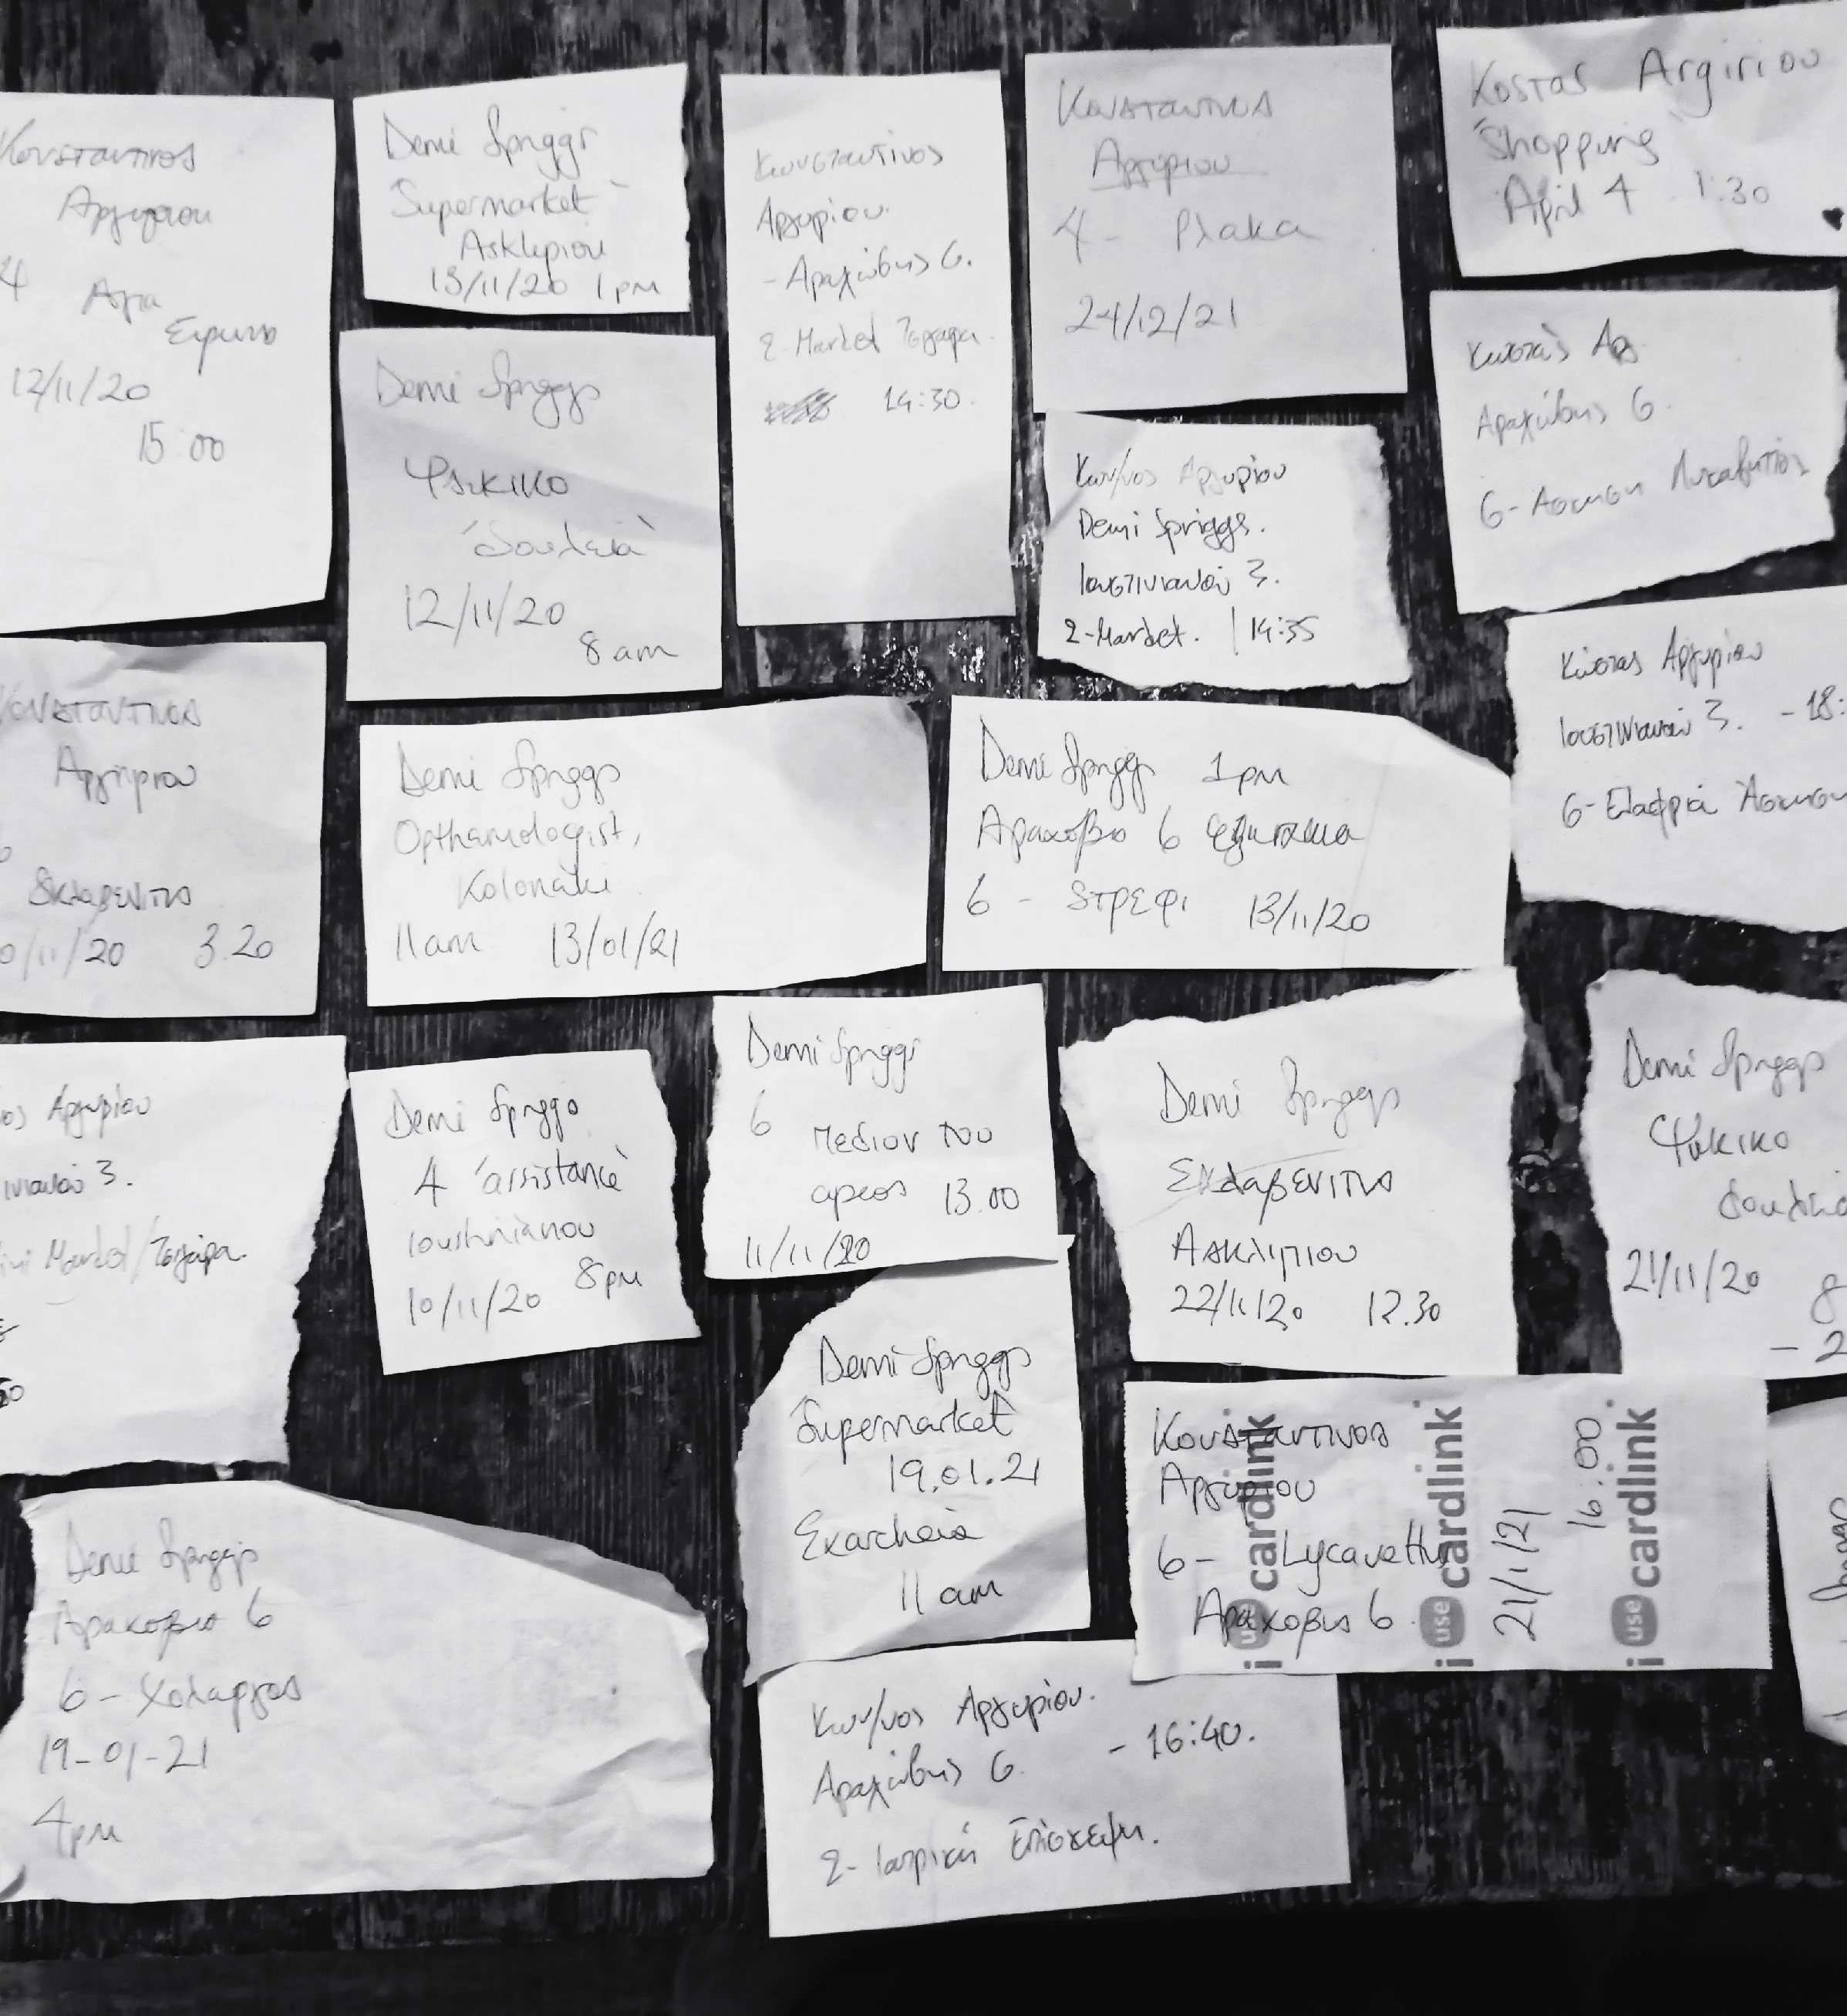 Κονσταντινοs
Αργυριου
4 Αγια
Ειρηνη
12/11/20
15:00
Demi Spriggs
'Supermarket'
Asklipiou
13/11/20 1pm
Κωνσταντίνος
Αργυρίου.
- Αραχώβης 6.
2. Market Τσιγάρα.
14:30.
Κονσταντινοs
Αργυριου
4 - Plaka
24/12/21
Kostas Argiriou
'Shopping'
April 4 1:30
Demi Spriggs
Ψυχικο
'δουλειά'
12/11/20
8 am
Κων/νος Αργυρίου
Demi Spriggs.
Ιουστινιανού 3.
2-Market. | 14:35
Κώστας Αργ.
Αραχώβης 6.
6- Άσκηση Λυκαβηττός
Κονσταντινοs
Αργυριου
Sκλαβενιτηs
0/11/20 3.20
Demi Spriggs
Opthamologist,
Kolonaki
11am 13/01/21
Demi Spriggs 1pm
Αραχοβιs 6
6 - Sτρεφι 13/11/20
Κώστας Αργυρίου
Ιουστινιανού 3. - 18:
6- Ελαφριά Άσκηση
ος Αργυρίου
ινιανού 3.
ini Market/Τσιγάρα.
Demi Spriggs
4 'assistance'
Ioustinianou
10/11/20 8pm
Demi Spriggs
6 πεδιον του
αρεοs 13.00
11/11/20
Demi Spriggs
Σκλαβενιτηs
Αsκλιπιου
22/11/20 12.30
Demi Spriggs
Ψυχικο
21/11/20 8
- 2
Demi Spriggs
Supermarket
19.01.21
Exarcheia
11 am
Κονσταντινοs
Αργυριου
6 - Lycavettus
Αραχοβιs 6.
21/1/21
16:00
i use cardlink
i use cardlink
i use cardlink
Demi Spriggs
Αρακοβιs 6
6 - Χολαργοs
19-01-21
4pm
Κων/νος Αργυρίου.
Αραχώβης 6. - 16:40.
2- Ιατρική Επίσκεψη.